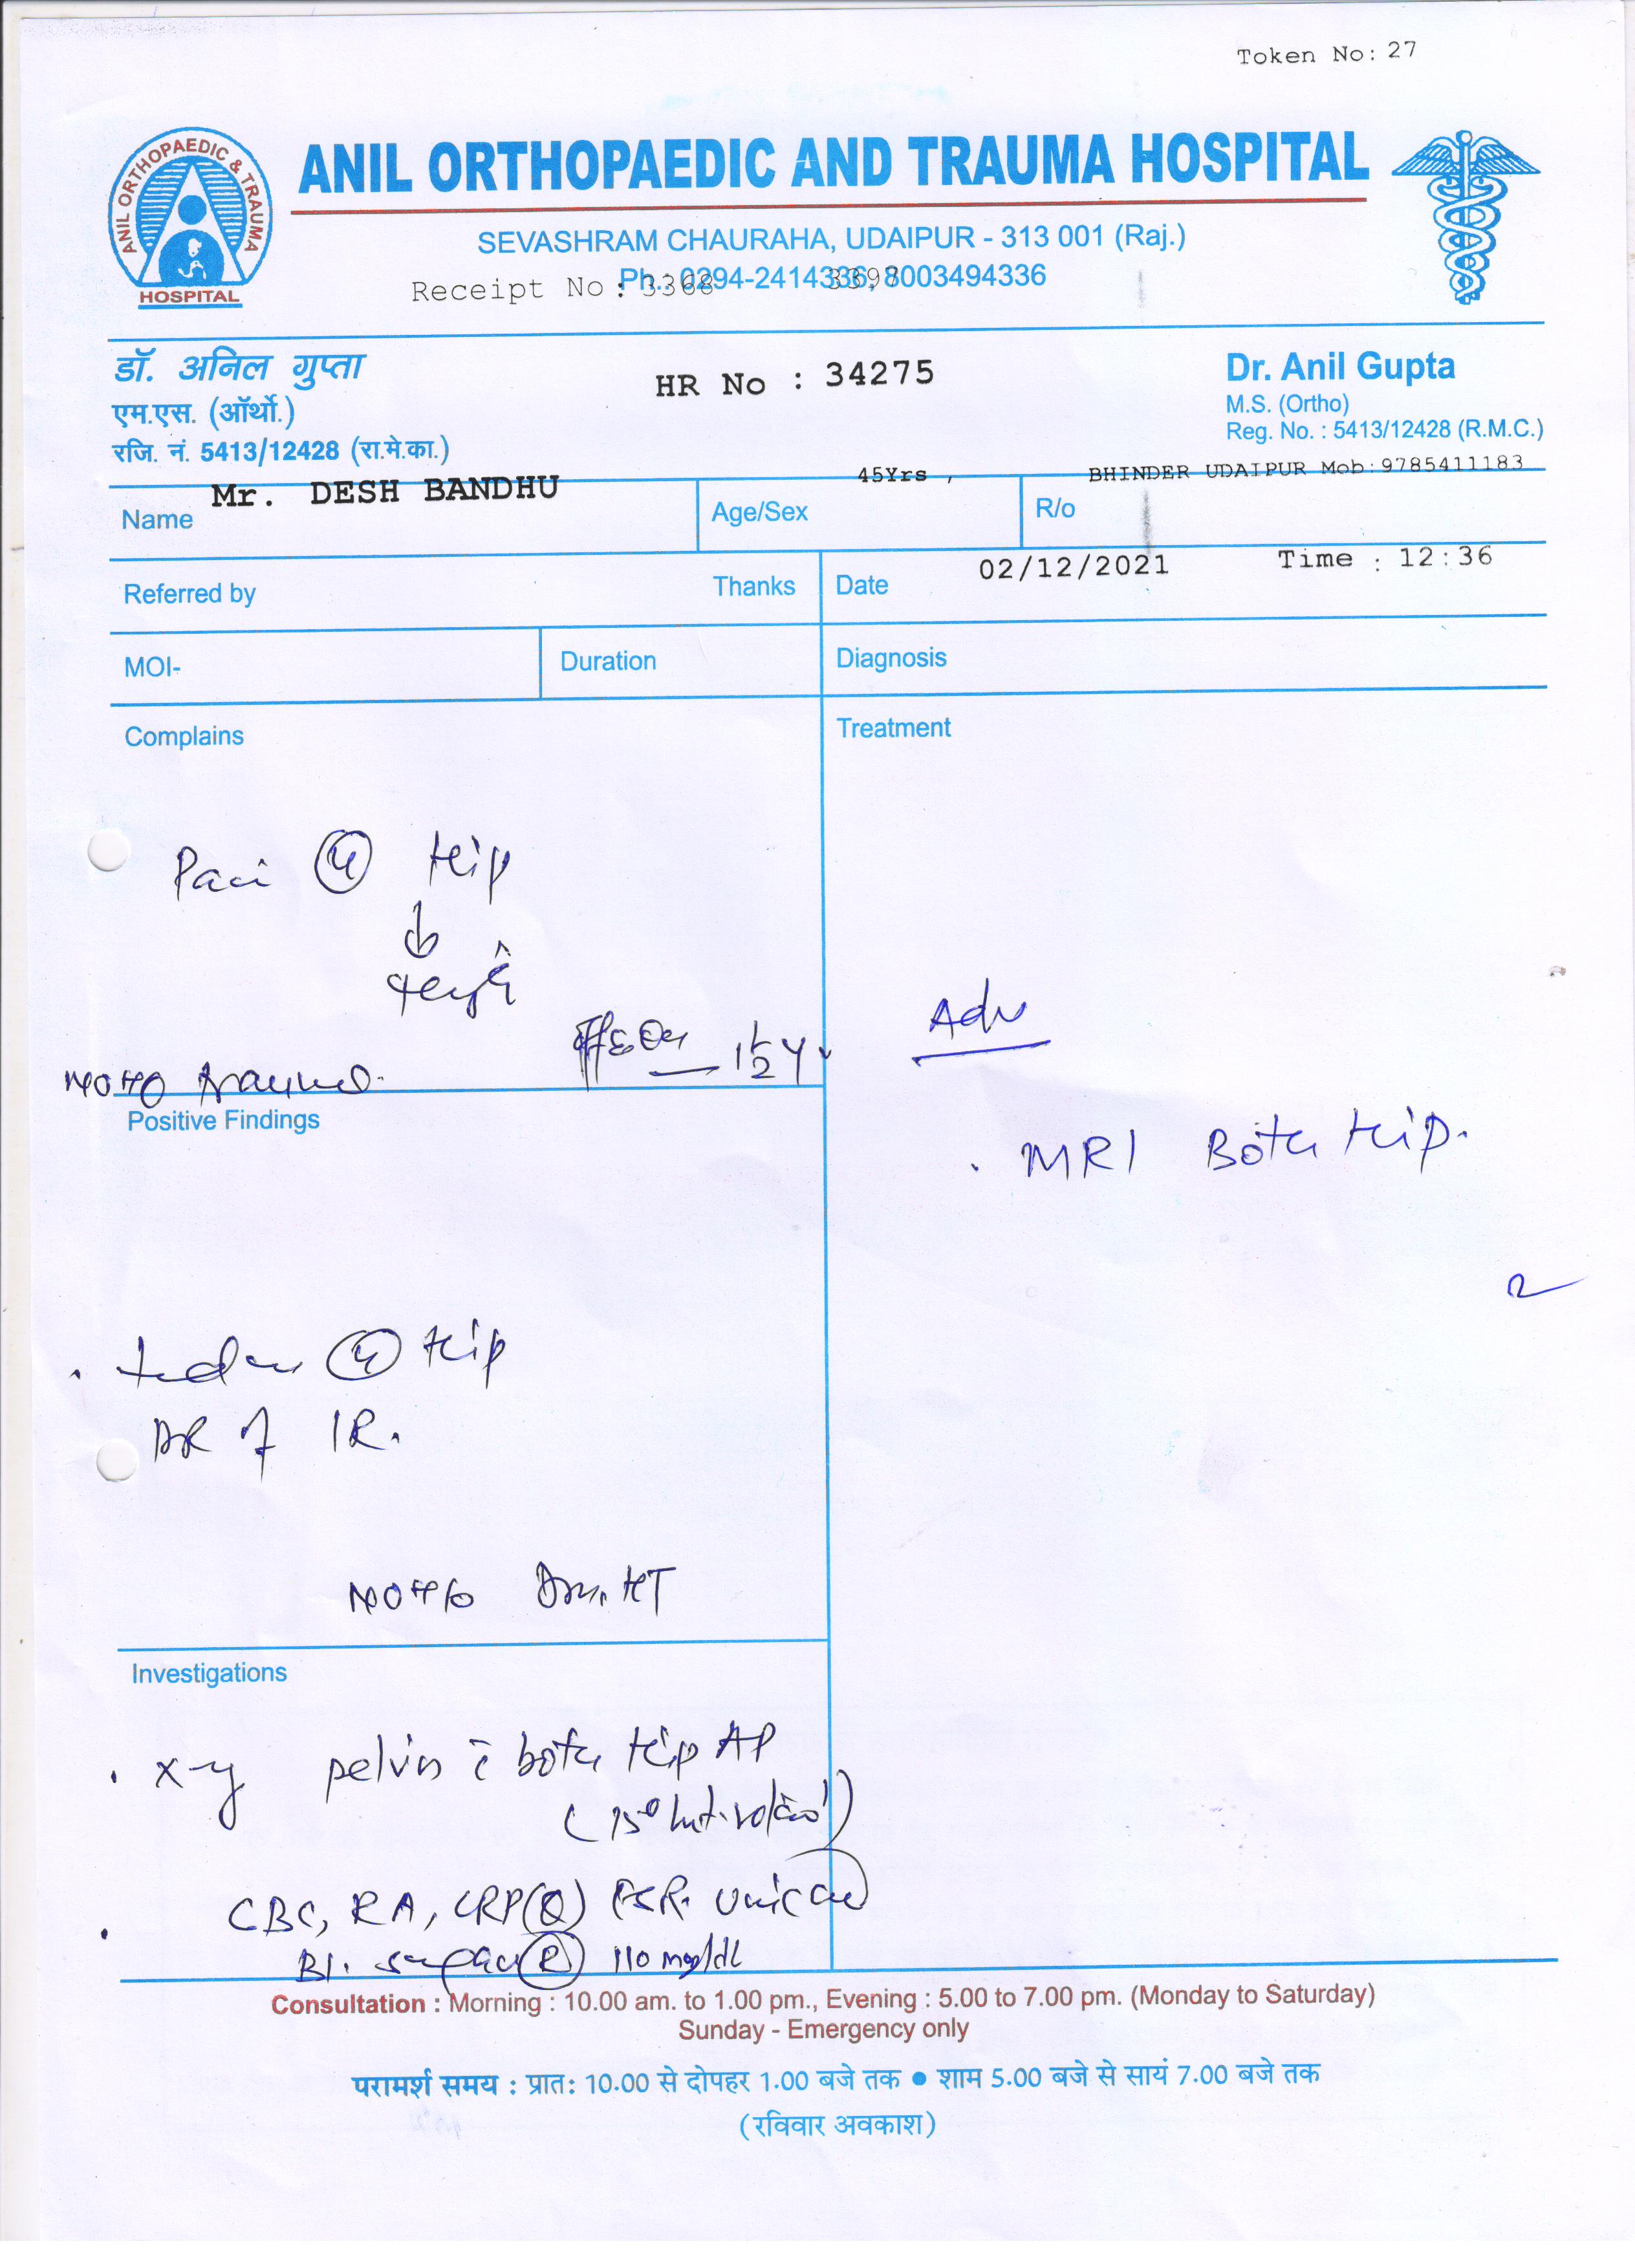 Token No: 27
ANIL ORTHOPAEDIC & TRAUMA
HOSPITAL
ANIL ORTHOPAEDIC AND TRAUMA HOSPITAL
SEVASHRAM CHAURAHA, UDAIPUR - 313 001 (Raj.)
Ph.: 0294-2414336, 8003494336
Receipt No : 3368 3397
डॉ. अनिल गुप्ता
एम.एस. (ऑर्थो.)
रजि. नं. 5413/12428 (रा.मे.का.)
HR No : 34275
Dr. Anil Gupta
M.S. (Ortho)
Reg. No. : 5413/12428 (R.M.C.)
Name Mr. DESH BANDHU Age/Sex 45Yrs , R/o BHINDER UDAIPUR Mob:9785411183
Referred by Thanks Date 02/12/2021 Time : 12:36
MOI- Duration Diagnosis
Complains
Pain hip
1½ y
NO H/O trauma.
Positive Findings
. tender hip
of IR.
NO H/O HT
Investigations
. x-y pelvis c̄ both hip AP
(15° Int. rotation)
. CBC, RA, CRP(Q) ESR.
Bl. sugar (R) 110 mg/dL
Treatment
Adv
. MRI Both hip.
Consultation : Morning : 10.00 am. to 1.00 pm., Evening : 5.00 to 7.00 pm. (Monday to Saturday)
Sunday - Emergency only
परामर्श समय : प्रातः 10.00 से दोपहर 1.00 बजे तक ● शाम 5.00 बजे से सायं 7.00 बजे तक
(रविवार अवकाश)